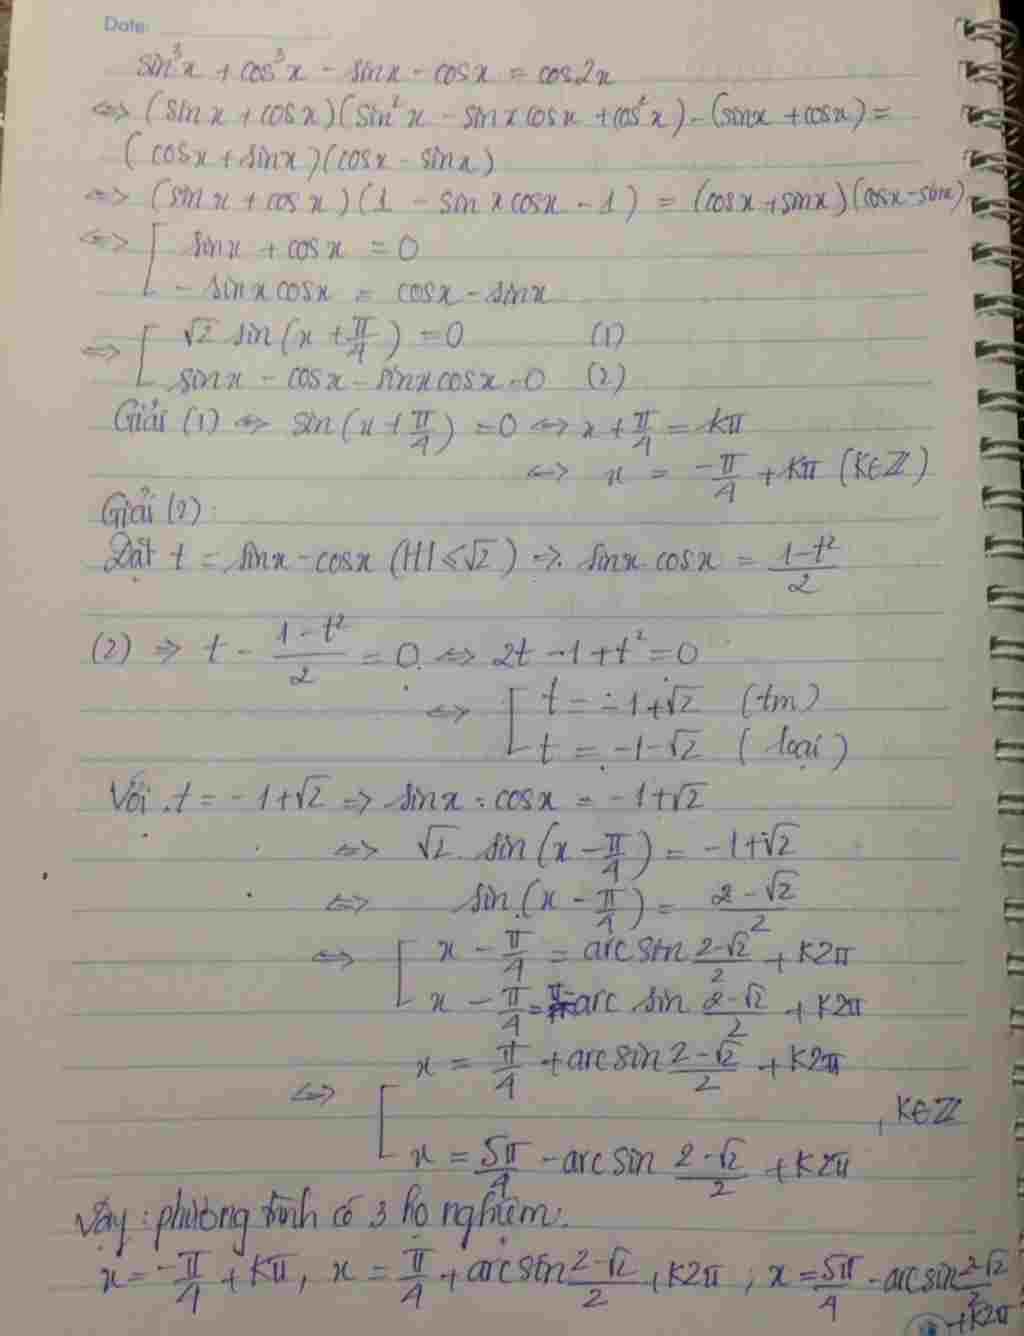 Date:
sin³x + cos³x - sinx - cosx = cos2x
⇔ (sinx + cosx)(sin²x - sinxcosx + cos²x) - (sinx + cosx) =
(cosx + sinx)(cosx - sinx)
⇔ (sinx + cosx)(1 - sinxcosx - 1) = (cosx + sinx)(cosx - sinx)
⇔ [ sinx + cosx = 0
- sinxcosx = cosx - sinx
⇔ [ √2 sin(x + π/4) = 0 (1)
sinx - cosx - sinxcosx = 0 (2)
Giải (1) ⇔ sin(x + π/4) = 0 ⇔ x + π/4 = kπ
⇔ x = -π/4 + kπ (k∈Z)
Giải (2):
Đặt t = sinx - cosx (|t| ≤ √2) ⇒ sinx cosx = (1-t²)/2
(2) ⇒ t - (1-t²)/2 = 0 ⇔ 2t - 1 + t² = 0
⇔ [ t = -1+√2 (tm)
t = -1-√2 (loại)
Với t = -1+√2 ⇒ sinx - cosx = -1+√2
⇔ √2 sin(x - π/4) = -1+√2
⇔ sin(x - π/4) = (2-√2)/2
⇔ [ x - π/4 = arcsin (2-√2)/2 + k2π
x - π/4 = π - arcsin (2-√2)/2 + k2π
x = π/4 + arcsin (2-√2)/2 + k2π
⇔ [ , k∈Z
x = 5π/4 - arcsin (2-√2)/2 + k2π
Vậy: phương trình có 3 họ nghiệm:
x = -π/4 + kπ, x = π/4 + arcsin (2-√2)/2 + k2π ; x = 5π/4 - arcsin (2-√2)/2
+ k2π